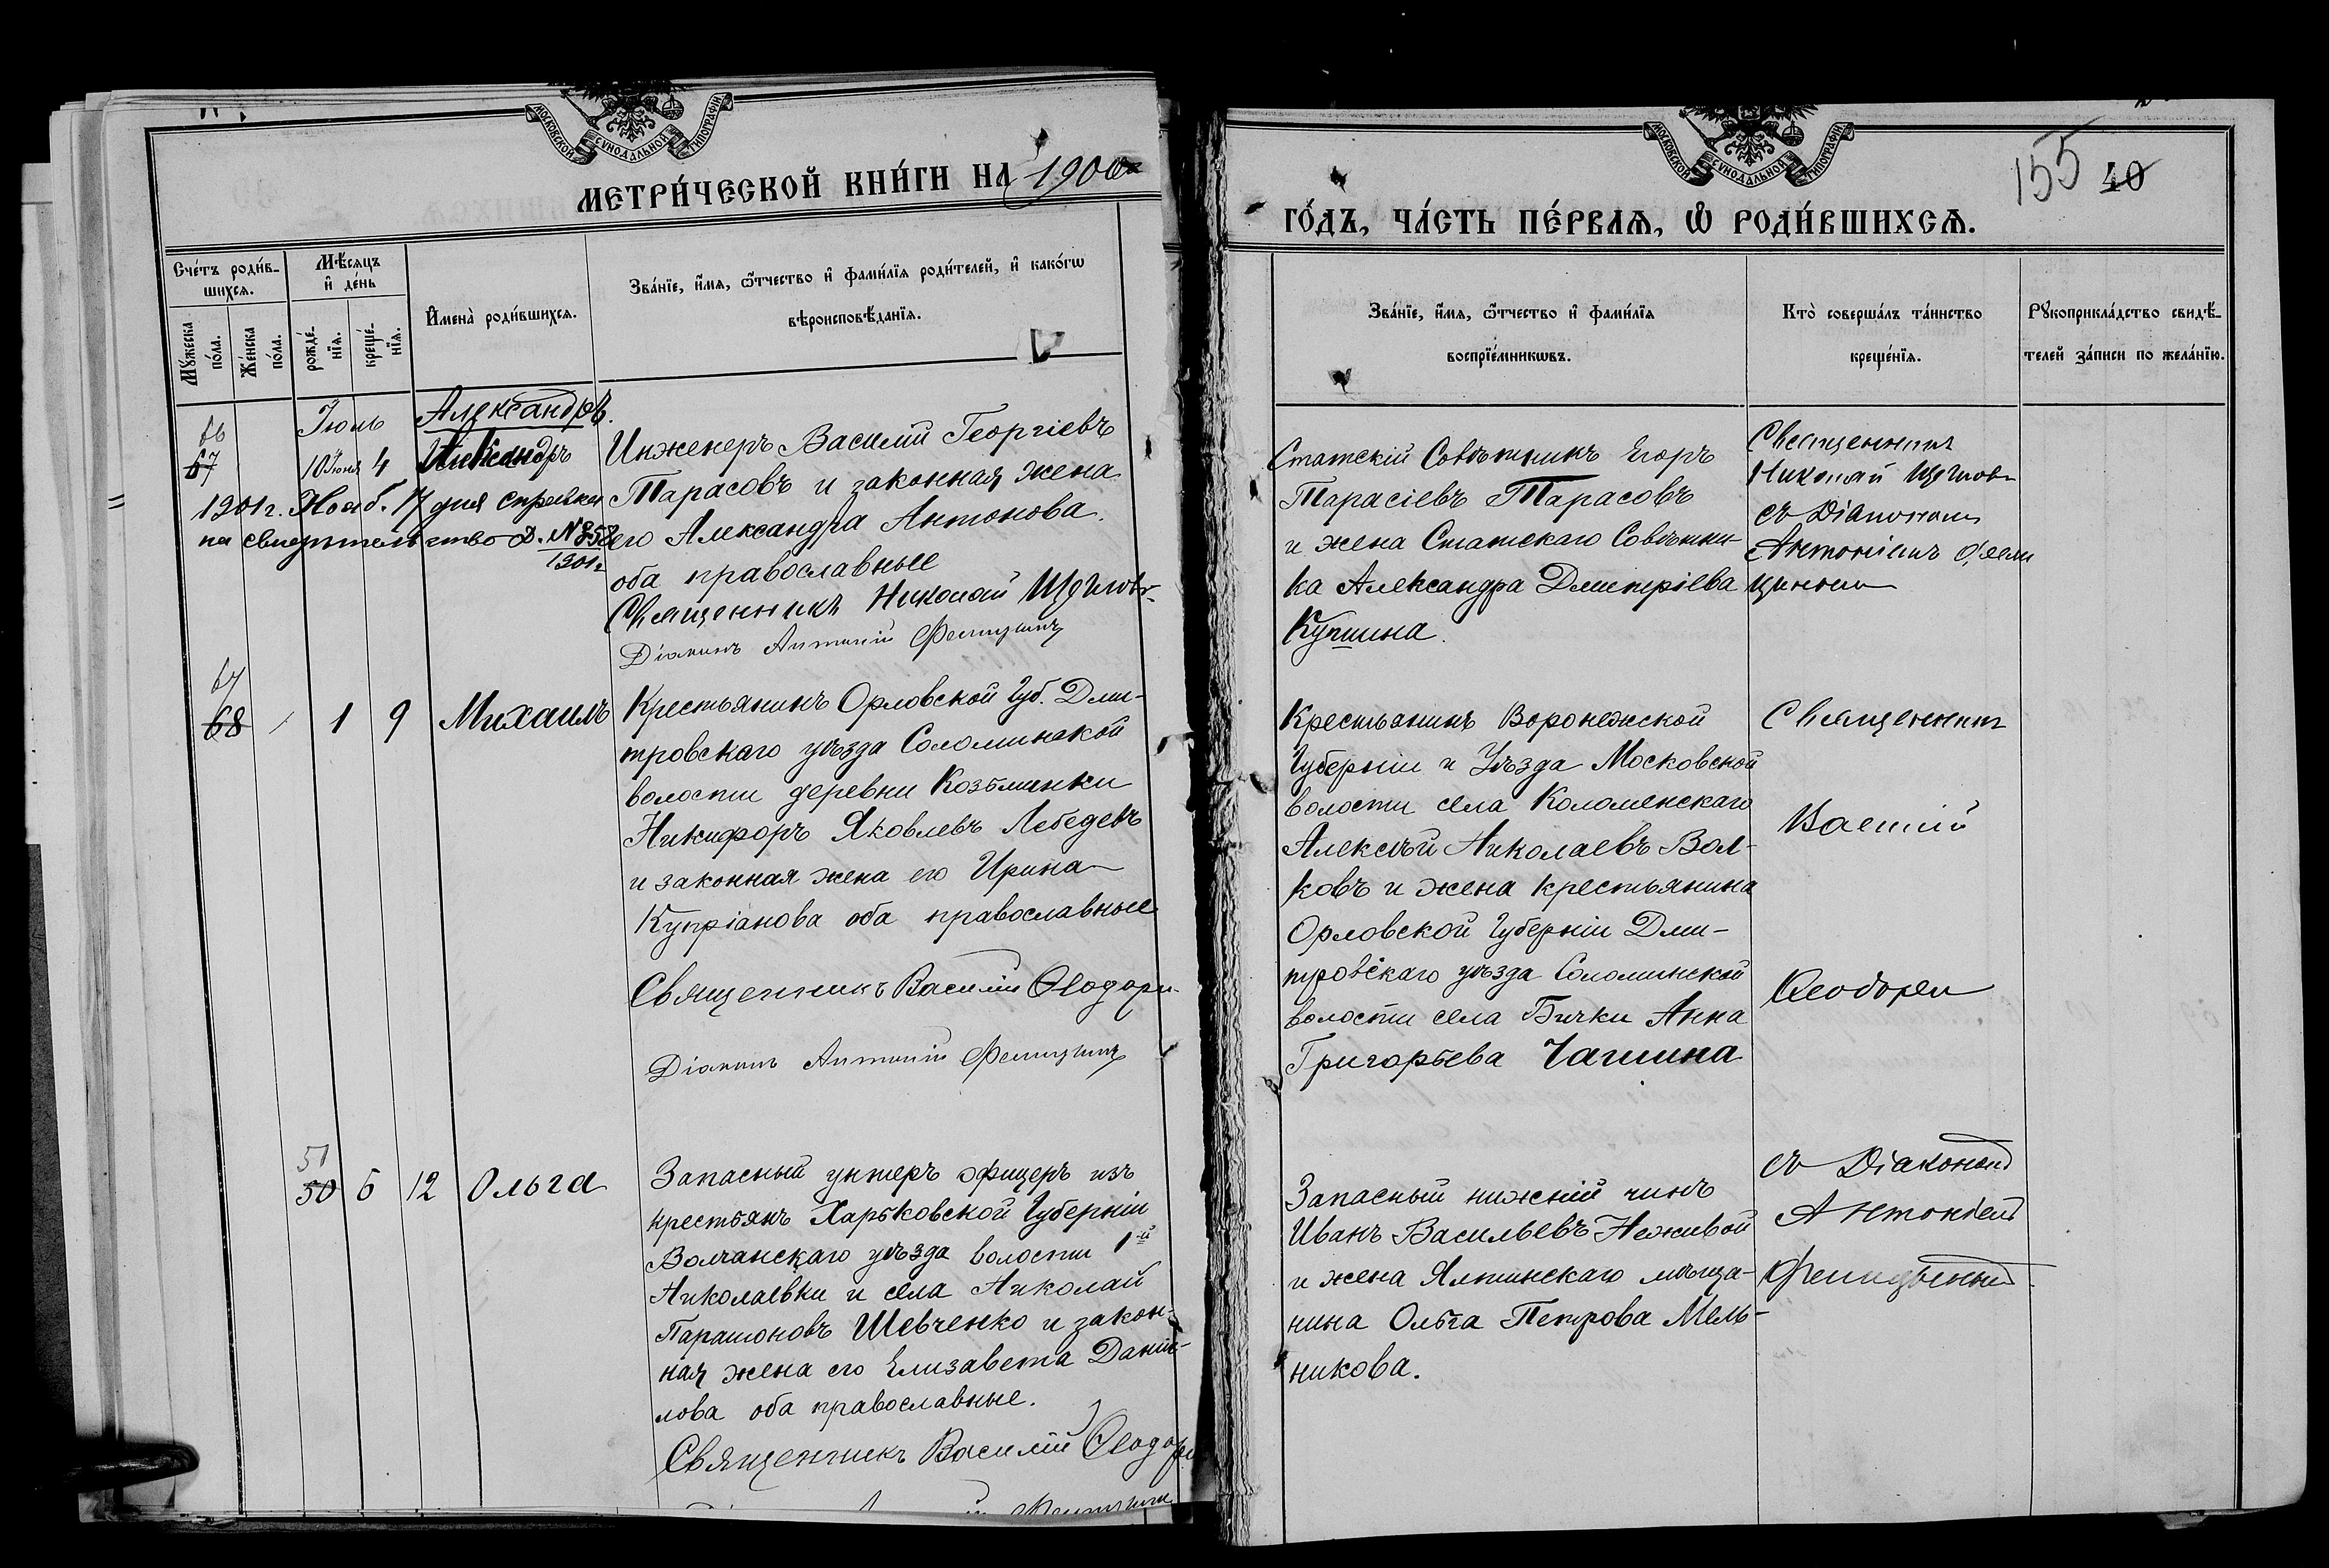 МОСКОВСКОЙ СѴНОДАЛЬНОЙ ТИПОГРАФІИ
МЕТРИ́ЧЕСКОЙ КНИ́ГИ НА 1900
Сче́тъ роди́в-
шихся.
Мѣ́сяцъ
и҆ де́нь
Мꙋ́жеска
по́ла.
Же́нска
по́ла.
рожде́-
нїя.
креще́-
нїя.
И҆мена̀ роди́вшихся.
Зва́нїе, и҆́мя, ѻ҆́тчество и҆ фами́лїя роди́телей, и҆ како́гѡ
вѣроисповѣ́данїя.
66
67
Іюль
10 Іюня 4
Александръ.
Александръ
1901 г. Нояб. 17 дня справка
на свидѣтельство Д. № 858
1901 г
Инженеръ Василій Георгіевъ
Тарасовъ и законная жена
его Александра Антонова.
оба православные
Священникъ Николай Щегловъ
Діаконъ Антоній Феницынъ
67
68 1 9 Михаилъ
Крестьянинъ Орловской Губ. Дми-
тровскаго уѣзда Соломинской
волости деревни Козьминки
Никифоръ Яковлевъ Лебедевъ
и законная жена его Ирина
Купріанова оба православные
Священникъ Василій Ѳеодори
Діаконъ Антоній Феницынъ
51
50 6 12 Ольга
Запасный унтеръ офицеръ изъ
крестьянъ Харьковской Губерніи
Волчанскаго уѣзда волости 1-й
Николаевки и села Николай
Парамоновъ Шевченко и закон-
ная жена его Елизавета Дани-
лова оба православные.
Священникъ Василій Ѳеодори
МОСКОВСКОЙ СѴНОДАЛЬНОЙ ТИПОГРАФІИ
155 40
ГО́ДЪ, ЧА́СТЬ ПЕ́РВАЯ, Ѽ РОДИ́ВШИХСЯ.
Зва́нїе, и҆́мя, ѻ҆́тчество и҆ фами́лїя
воспрїе́мникѡвъ.
Кто̀ соверша́лъ та́инство
креще́нїя.
Рꙋкоприкла́дство свидѣ́-
телей за́писи по жела́нїю.
Статскій Совѣтникъ Егоръ
Тарасіевъ Тарасовъ
и жена Статскаго Совѣтни-
ка Александра Дмитріева
Купшина.
Священникъ
Николай Щегловъ
съ Діакономъ
Антоніемъ Фени
цынымъ
Крестьянинъ Воронежской
Губерніи и Уѣзда Московской
волости села Коломенскаго
Алексѣй Николаевъ Вол-
ковъ и жена крестьянина
Орловской Губерніи Дми-
тровскаго уѣзда Соломинской
волости села Бички Анна
Григорьева Чашина
Священникъ
Василій
Ѳеодори
Запасный нижній чинъ
Иванъ Васильевъ Неживой
и жена Ялтинскаго мѣща-
нина Ольга Петрова Мель-
никова.
съ Діакономъ
Антоніемъ
Феницынымъ